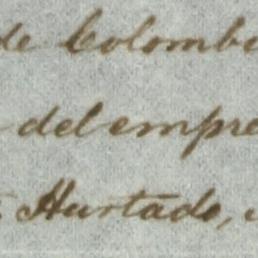 de Colomb
del empre
Hurtado,